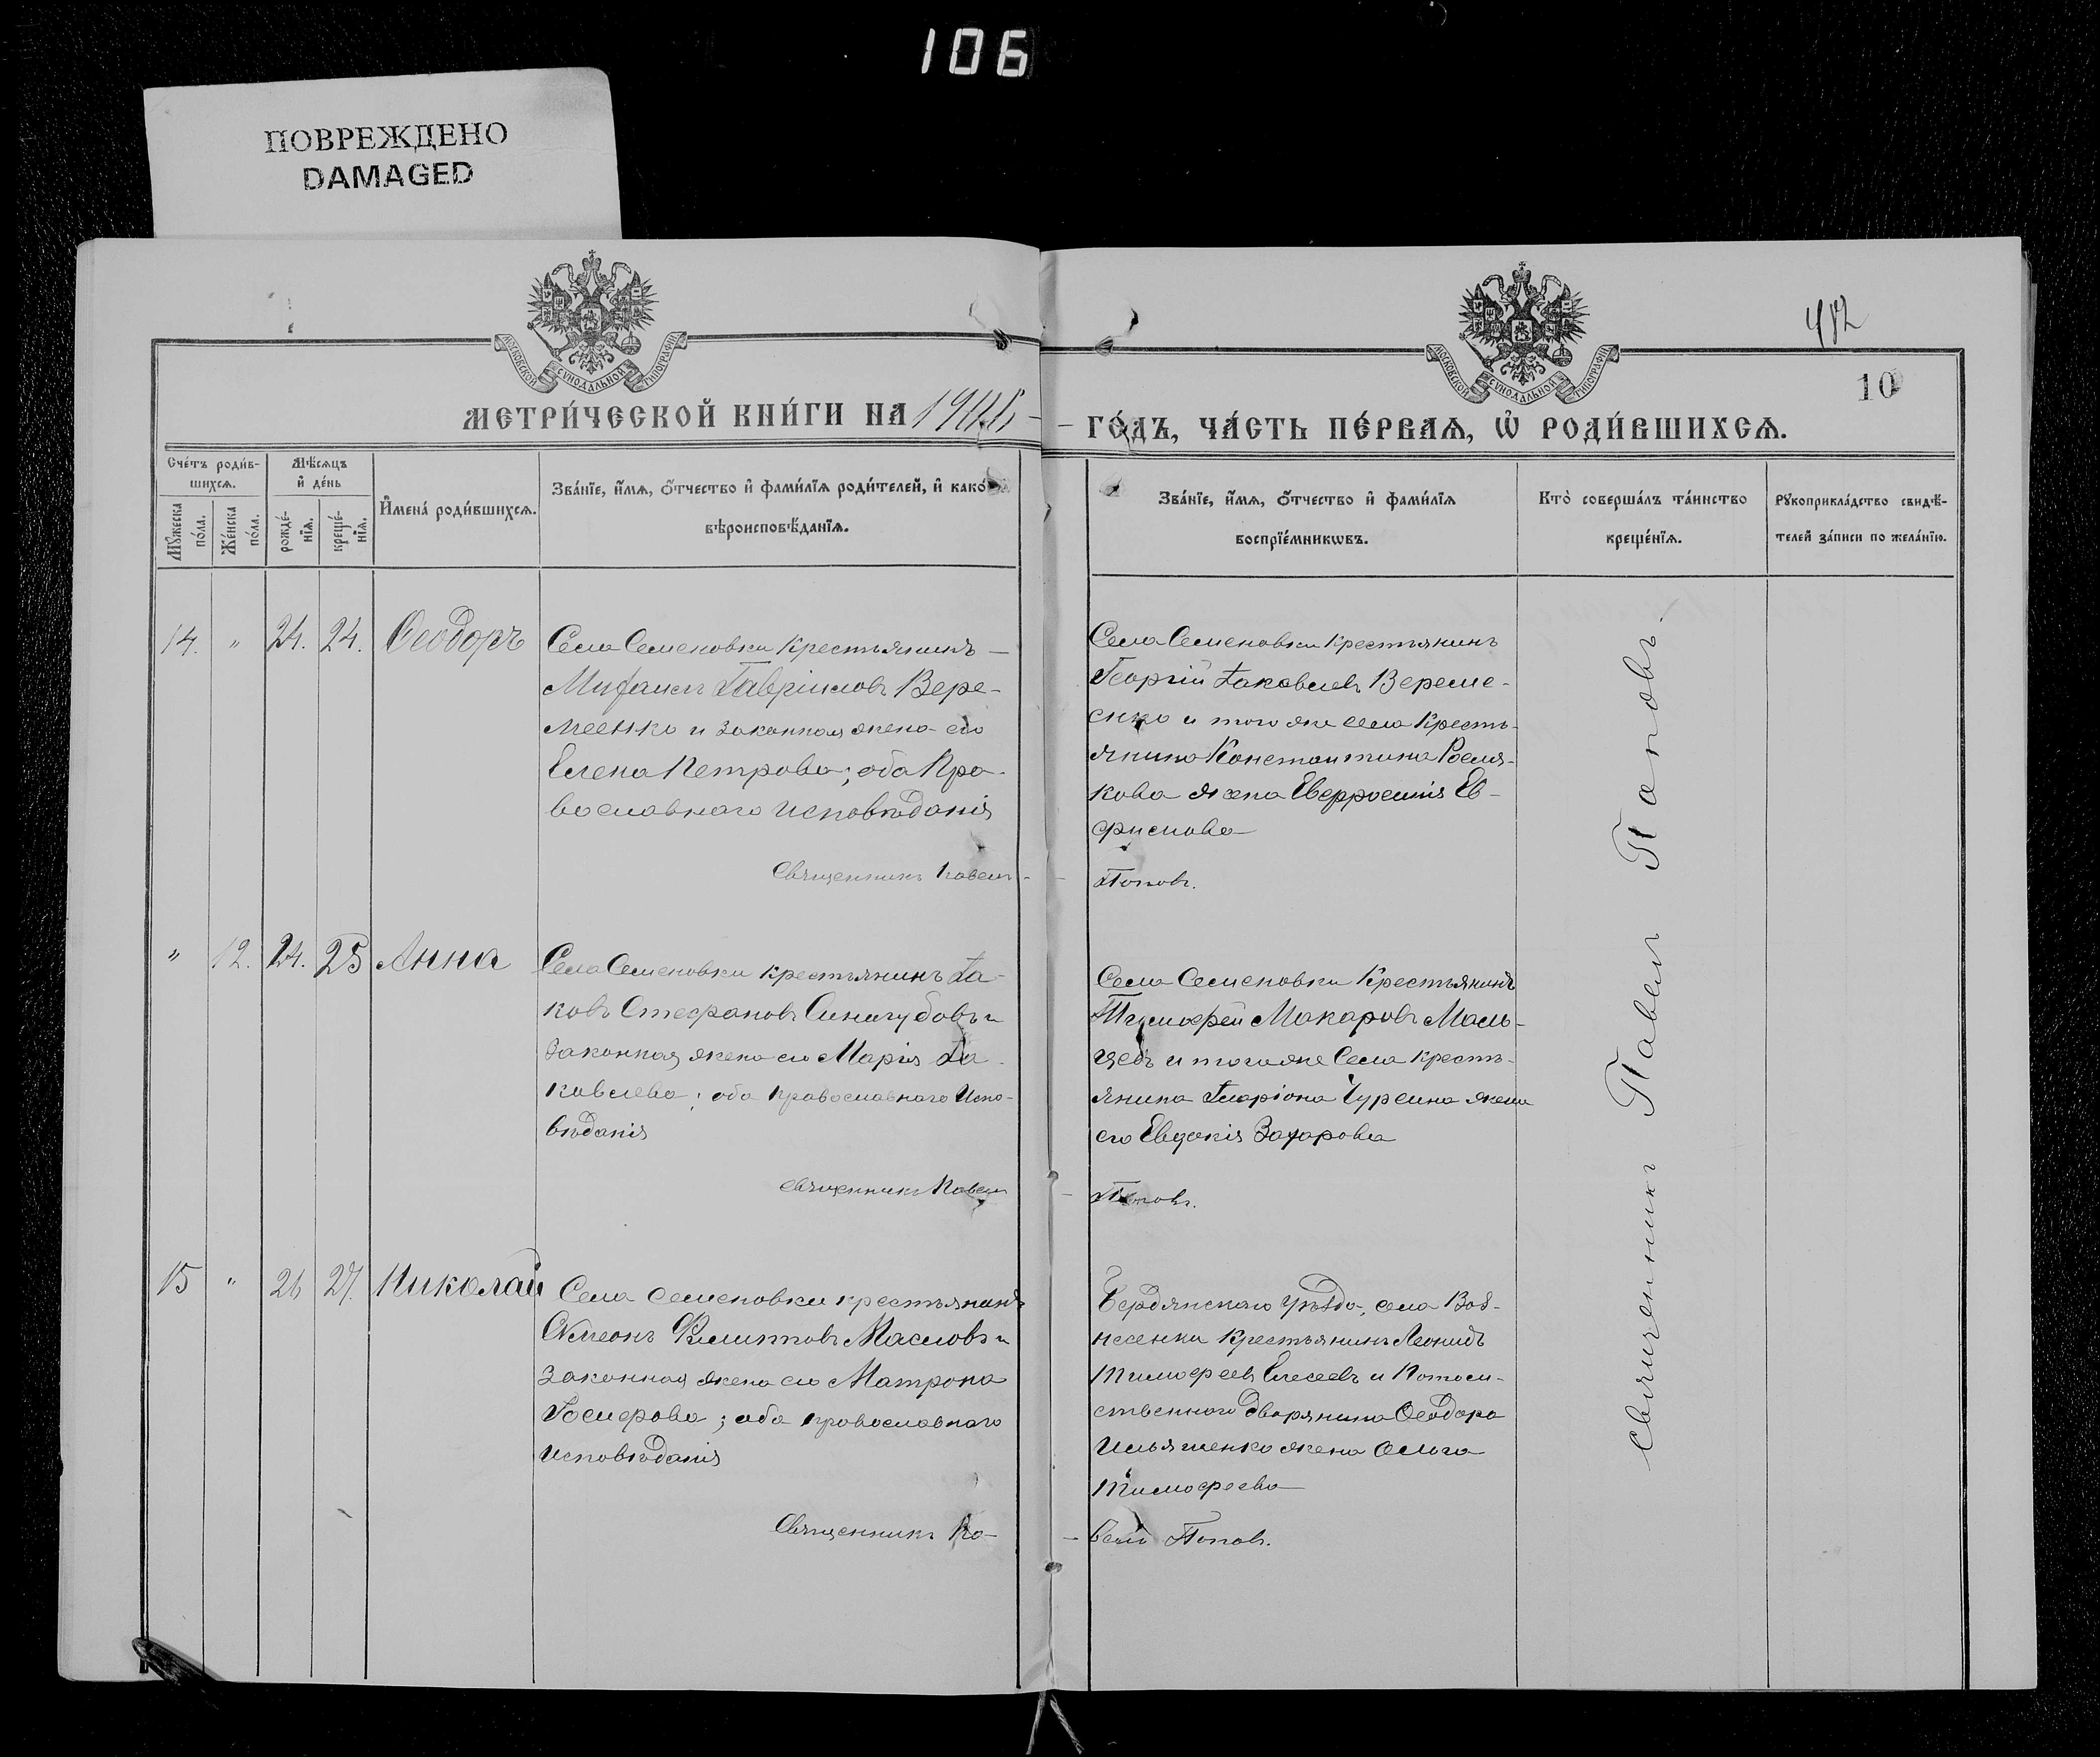 106
ПОВРЕЖДЕНО
DAMAGED
МОСКОВСКОЙ СѴНОДАЛЬНОЙ ТИПОГРАФІИ
МОСКОВСКОЙ СѴНОДАЛЬНОЙ ТИПОГРАФІИ
482
10
МЕТРИ́ЧЕСКОЙ КНИ́ГИ НА
ГО́ДЪ, ЧА́СТЬ ПЕ́РВАѦ, Ѡ҆ РОДИ́ВШИХСѦ.
Сче́тъ роди́в-
шихсѧ.
Мѣ́сѧцъ
и҆ де́нь
Мꙋ́жеска
по́ла.
Же́нска
по́ла.
рожде́-
нїѧ.
креще́-
нїѧ.
И҆мена̀ роди́вшихсѧ.
Зва́нїе, и҆́мѧ, ѻ҆́тчество и҆ фами́лїѧ роди́телей, и҆ како́й
вѣроисповѣ́данїѧ.
Зва́нїе, и҆́мѧ, ѻ҆́тчество и҆ фами́лїѧ
воспрїе́мникѡвъ.
Кто̀ соверша́лъ та́инство
креще́нїѧ.
Рꙋкоприкла́дство свидѣ́-
телей за́писи по жела́нїю.
14. " 24. 24. Ѳеодоръ
Села Семеновки крестьянинъ
Гавріиловъ Вере-
меенко и законная жена его
Елена Петрова; оба Пра-
вославнаго исповѣданія
Священникъ Павелъ
Села Семеновки крестьянинъ
Георгій Іаковлевъ Вереме-
енко и того же села кресть-
янина Константина Росля-
кова жена Евфросинія Ев-
фимова
Поповъ.
" 12. 24. 25 Анна
Села Семеновки крестьянинъ Іа-
ковъ Стефановъ Синегубовъ и
Законная жена его Марія Іа-
ковлева; оба православнаго Испо-
вѣданія
священникъ Павелъ
Села Семеновки Крестьянинъ
Тимофей Макаровъ Маль-
цевъ и того же Села кресть-
янина Иларіона Чурсина жена
его Евдокія Захарова
Поповъ.
15 " 26 27. Николай
Села Семеновки крестьянинъ
Симеонъ Филипповъ Масловъ и
Законная жена его Матрона
оба православнаго
исповѣданія
Священникъ Па-
Бердянскаго уѣзда, села Воз-
несенки крестьянинъ Леонидъ
Тимофеевъ Елисеевъ и Потом-
ственнаго дворянина Ѳеодора
Ильяшенко жена Ольга
Тимофеева
велъ Поповъ.
Священникъ Павелъ Поповъ